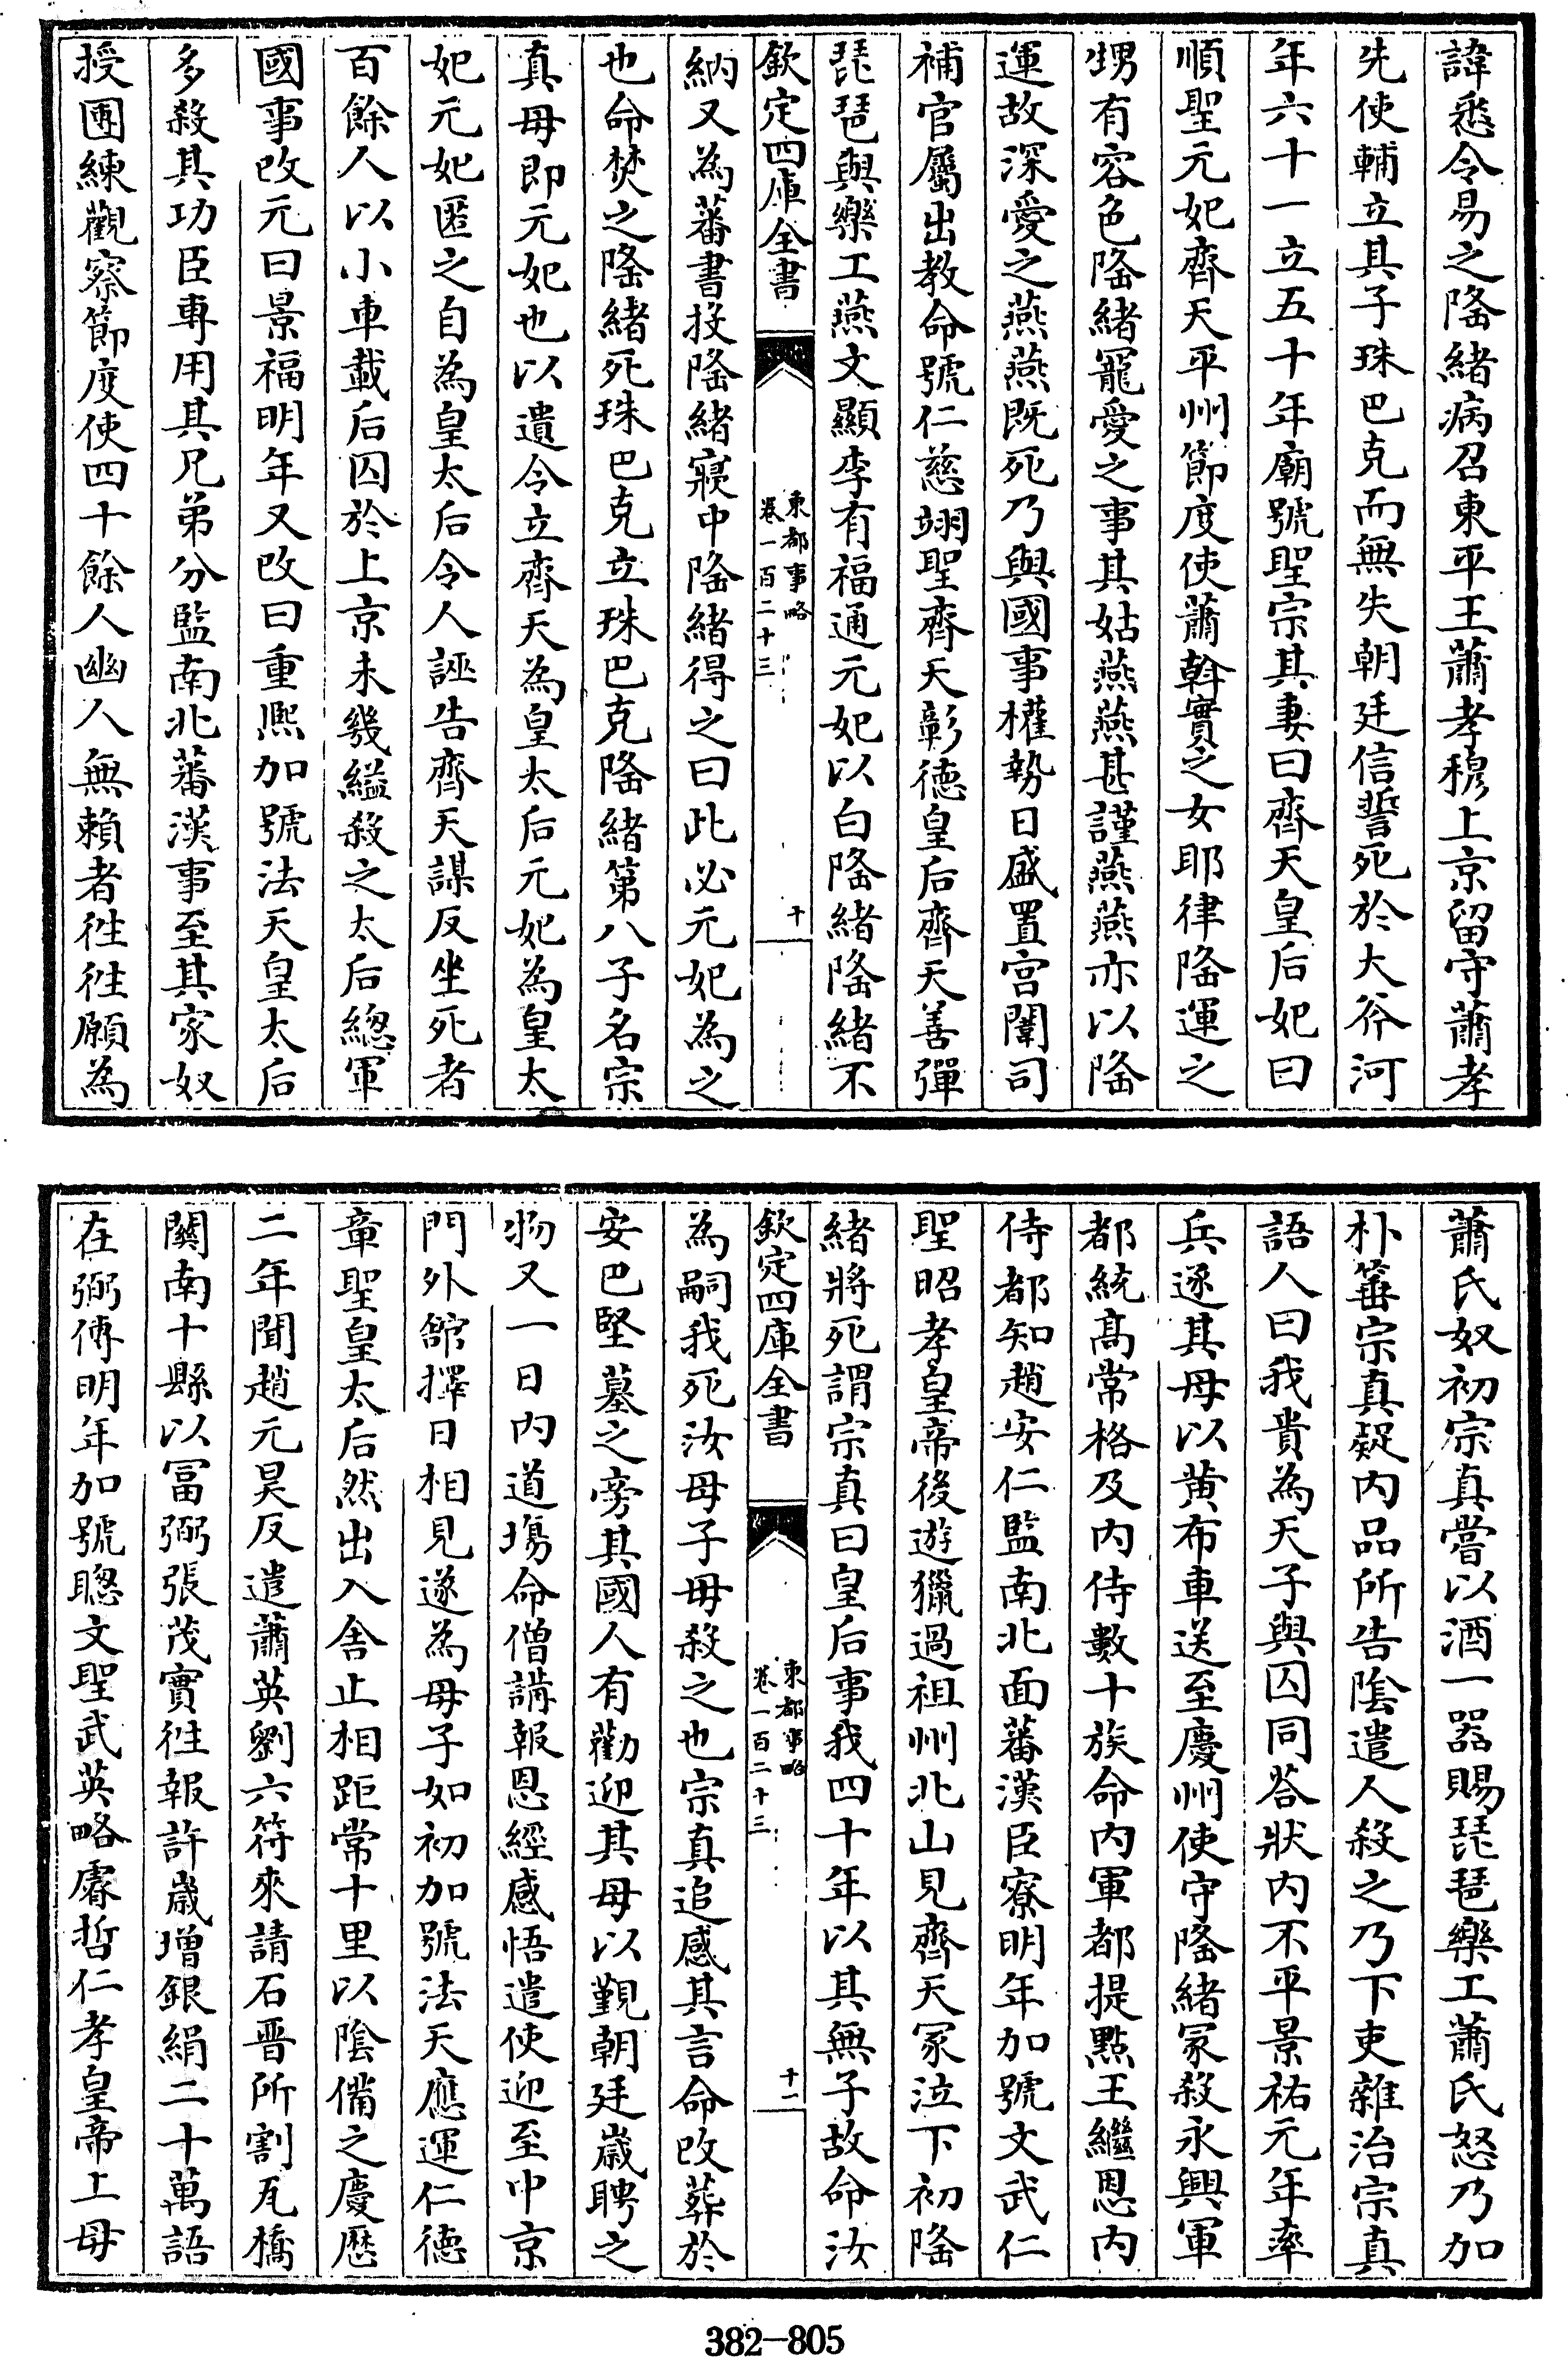 諱悉令易之隆緒病召東平王蕭孝穆上京留守蕭孝
先使輔立其子珠巴克而無失朝廷信誓死於大斧河
年六十一立五十年廟號聖宗其妻曰齊天皇后妃曰
順聖元妃齊天平州節度使蕭斡實之女耶律隆運之
甥有容色隆緒寵愛之事其姑燕燕甚謹燕燕亦以隆
運故深愛之燕燕既死乃與國事權勢日盛置宫闈司
補官屬出教命號仁慈翊聖齊天彰德皇后齊天善彈
琵琶與樂工燕文顯李有福通元妃以白隆緒隆緒不
欽定四庫全書
東都事略
卷一百二十三
十
納又為蕃書投隆緒寢中隆緒得之曰此必元妃為之
也命焚之隆緒死珠巴克立珠巴克隆緒第八子名宗
真母即元妃也以遺令立齊天為皇太后元妃為皇太
妃元妃匿之自為皇太后令人誣告齊天謀反坐死者
百餘人以小車載后囚於上京未幾縊殺之太后緫軍
國事改元曰景福明年又改曰重熈加號法天皇太后
多殺其功臣專用其兄弟分監南北蕃漢事至其家奴
授團練觀察節度使四十餘人幽人無賴者徃徃願為
蕭氏奴初宗真嘗以酒一器賜琵琶樂工蕭氏怒乃加
朴箠宗真疑内品所告陰遣人殺之乃下吏雜治宗真
語人曰我貴為天子與囚同荅狀内不平景祐元年率
兵逐其母以黄布車送至慶州使守隆緒冢殺永興軍
都統髙常格及内侍數十族命内軍都提點王繼恩内
侍都知趙安仁監南北面蕃漢臣寮明年加號文武仁
聖昭孝皇帝後遊獵過祖州北山見齊天冢泣下初隆
緒將死謂宗真曰皇后事我四十年以其無子故命汝
欽定四庫全書
東都事略
卷一百二十三
十一
為嗣我死汝母子毋殺之也宗真追感其言命改葬於
安巴堅墓之旁其國人有勸迎其母以覲朝廷歲聘之
物又一日内道場命僧講報恩經感悟遣使迎至中京
門外舘擇日相見遂為母子如初加號法天應運仁德
章聖皇太后然出入舍止相距常十里以陰備之慶歴
二年聞趙元昊反遣蕭英劉六符來請石晋所割瓦橋
闗南十縣以冨弼張茂實徃報許歲増銀絹二十萬語
在弼傳明年加號聰文聖武英略睿哲仁孝皇帝上母
382-805